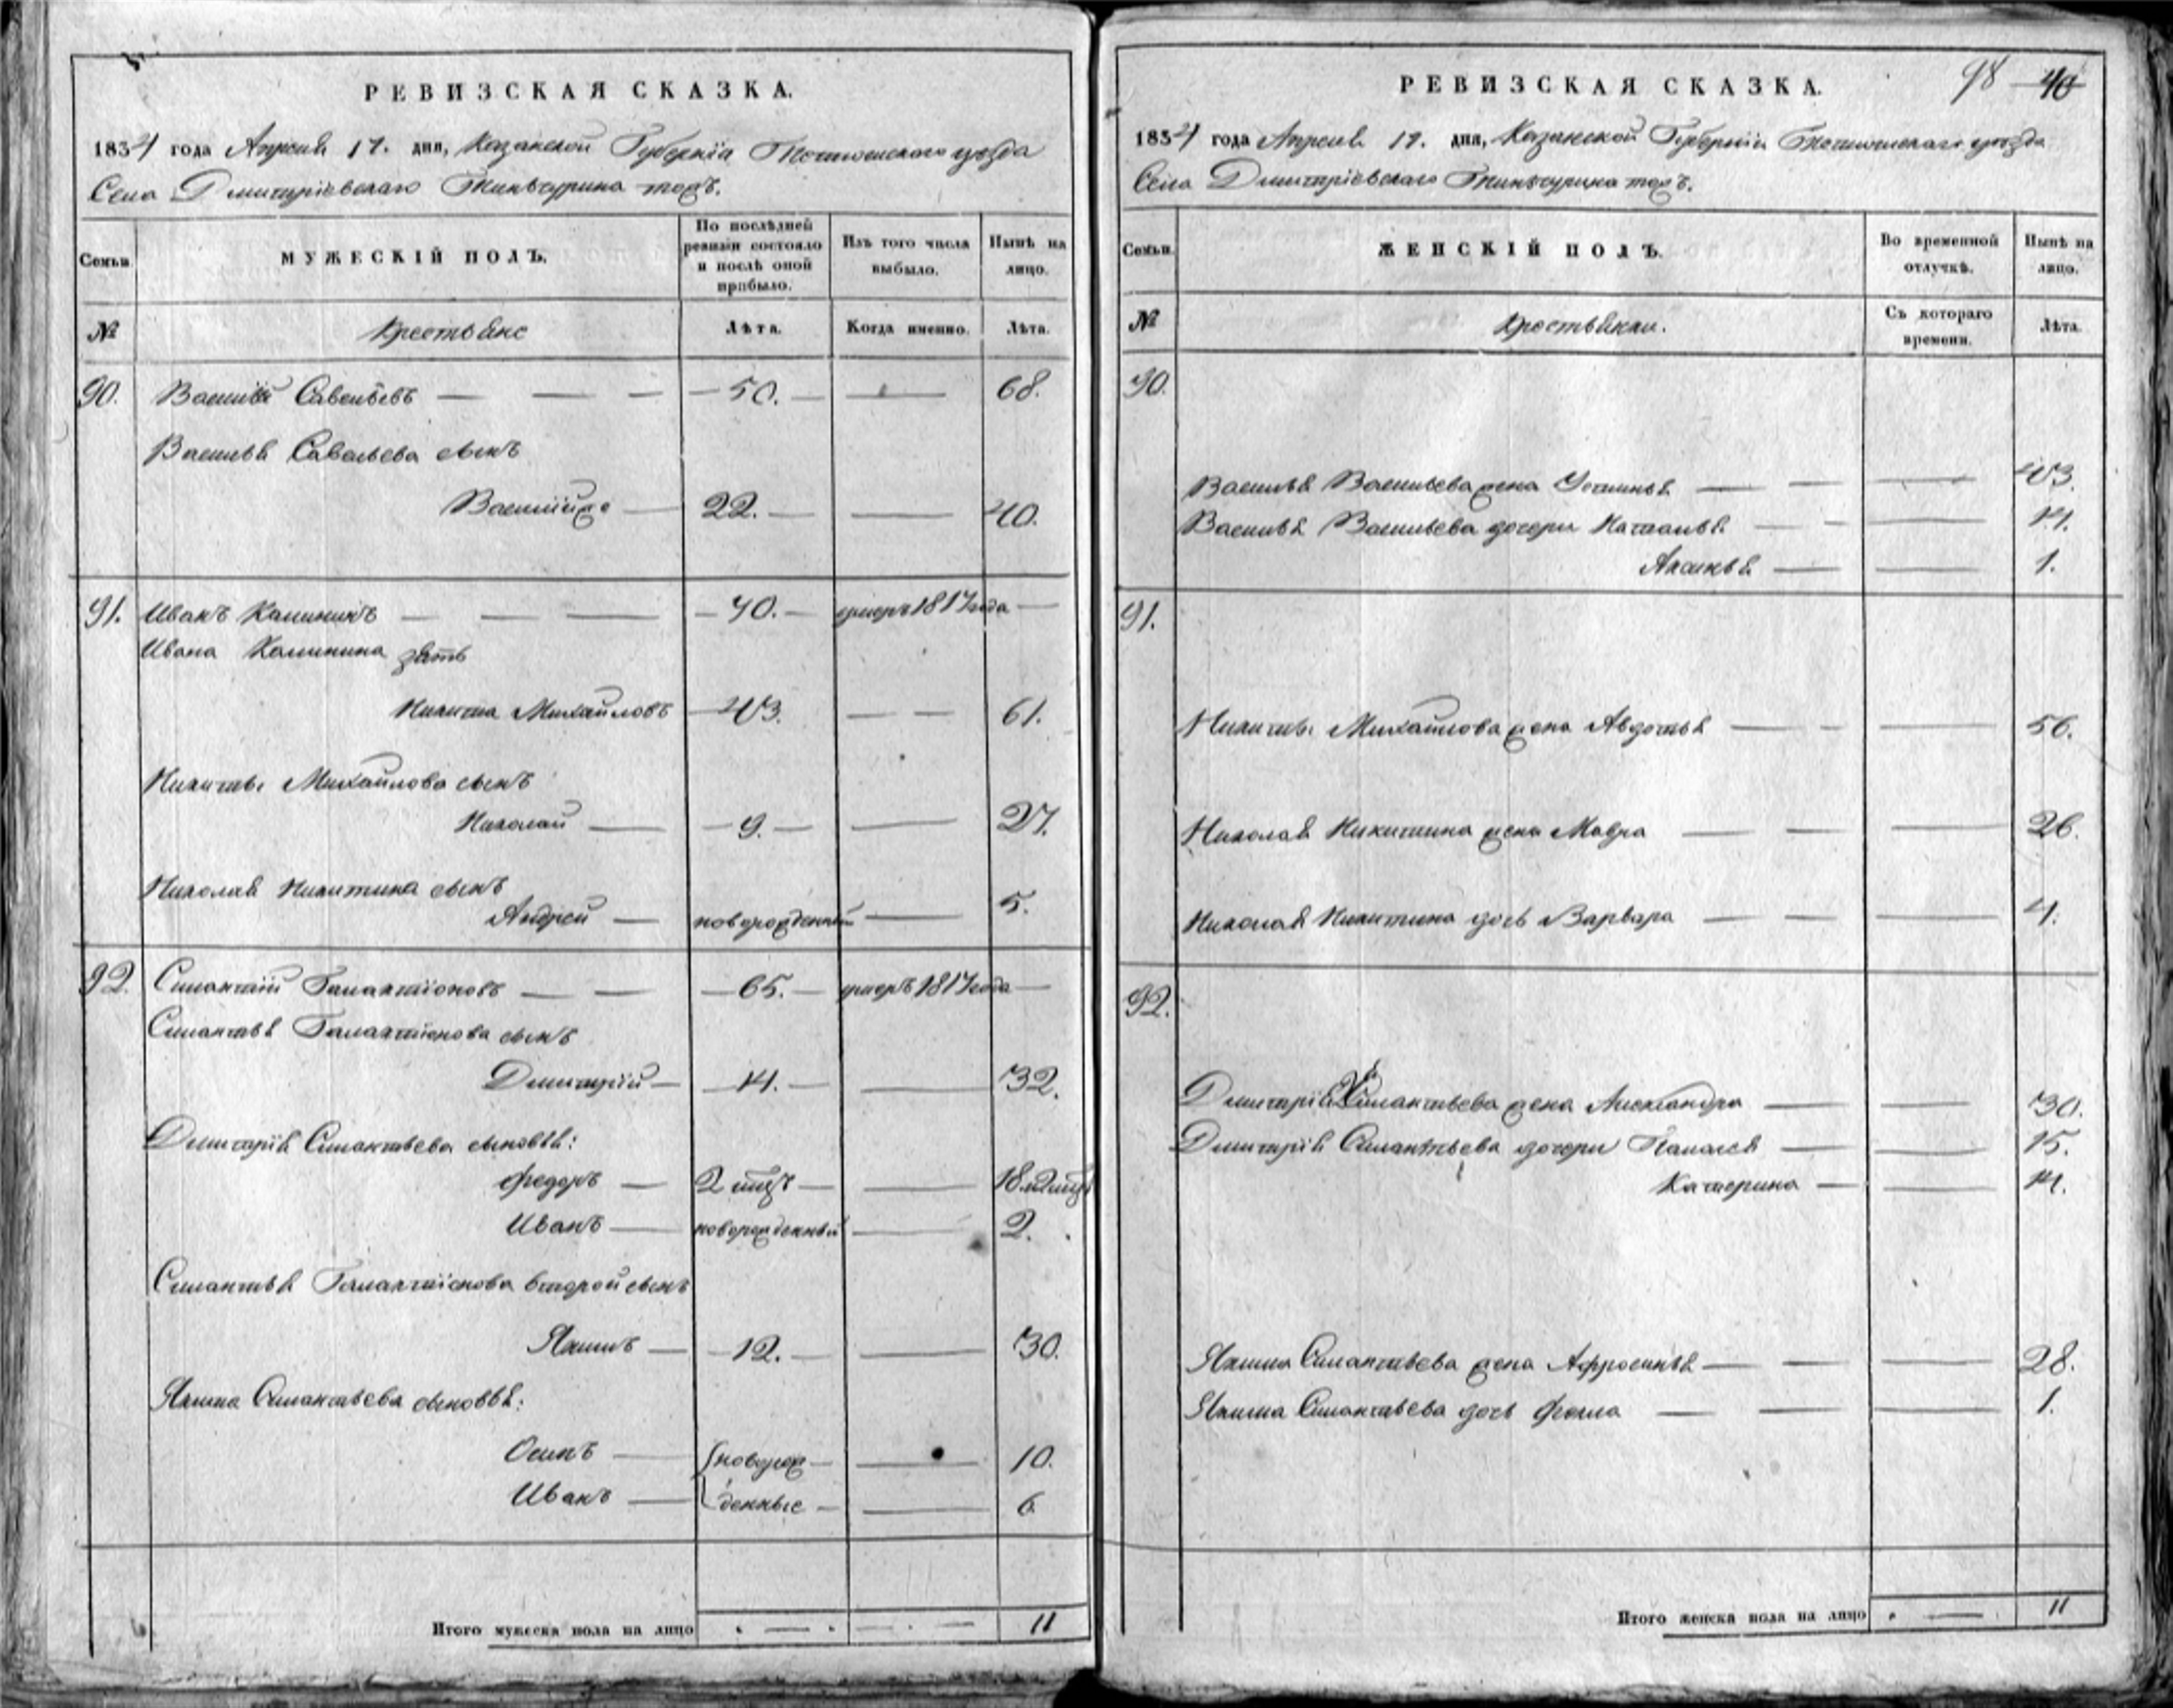 РЕВИЗСКАЯ СКАЗКА.
1834 года Апреля 17. дня, Казанской Губерніи Тетюшскаго уезда
Села Дмитріевскаго Тинчурина тожъ.
Семьи
МУЖЕСКІЙ ПОЛЪ.
По послѣдней ревизіи состояло и послѣ оной прибыло.
Изъ того числа выбыло.
Нынѣ на лицо.
№
Крестьяне
Лѣта.
Когда именно.
Лѣта.
90. Василій Савельевъ — 50. — 68.
Василья Савельева сынъ
Василійже — 22. — 40.
91. Иванъ Калининъ — 70. — умеръ 1817 года
Ивана Калинина зять
Никита Михайловъ — 43. — 61.
Никиты Михайлова сынъ
Николай — 9. — 27.
Николая Никитина сынъ
Андрей — новорожденный — 5.
92. Силантій Галактіоновъ — 65. — умеръ 1817 года
Силантья Галактіонова сынъ
Дмитрій — 14. — 32.
Дмитрія Силантьева сыновья:
Федоръ — 2 мцъ — 18 л 2 мцъ
Иванъ — новорожденный — 2.
Силантья Галактіонова второй сынъ
Якимъ — 12. — 30.
Якима Силантьева сыновья:
Осипъ — новорож- — 10.
Иванъ — денные — 6
Итого мужеска пола на лицо 11
РЕВИЗСКАЯ СКАЗКА.
98 40
1834 года Апреля 17. дня, Казанской Губерніи Тетюшскаго уезда
Села Дмитріевскаго Тинчурина тожъ.
Семьи.
ЖЕНСКІЙ ПОЛЪ.
Во временной отлучкѣ.
Нынѣ на лицо.
№
Крестьянки.
Съ котораго времени.
Лѣта.
90.
Василья Васильева жена Устинья — 43.
Василья Васильева дочери Наталья — 14.
Аксинья — 1.
91.
Никиты Михайлова жена Авдотья — 56.
Николая Никитина жена Мавра — 26.
Николая Никитина дочь Варвара — 4.
92.
Дмитрія Силантьева жена Александра — 30.
Дмитрія Силантьева дочери Палагея — 15.
Катерина — 14.
Якима Силантьева жена Афросинья — 28.
Якима Силантьева дочь Фекла — 1.
Итого женска пола на лицо 11